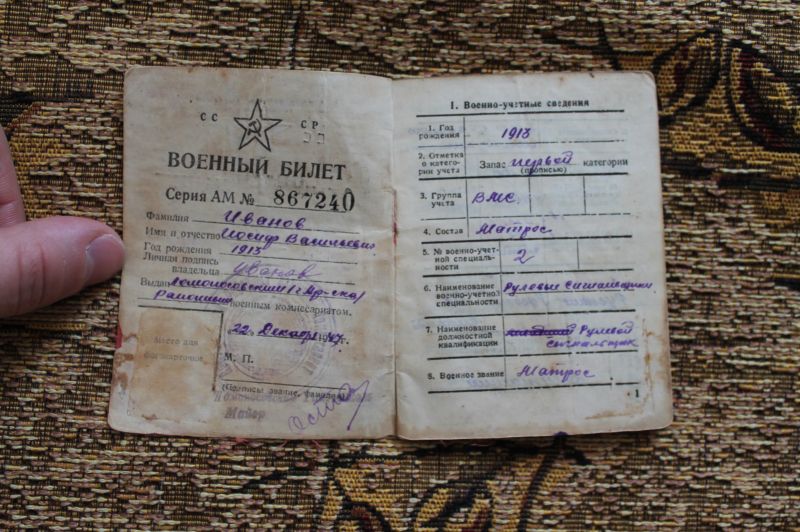 СС СР
ВОЕННЫЙ БИЛЕТ
Серия АМ № 867240
Фамилия Иванов
Имя и отчество Иосиф Васильевич
Год рождения 1913
Личная подпись
владельца Иванов
Выдан Ломоносовский /г. Ар-ска/
Районным военным комиссариатом.
22 Декабря 1947 г.
Место для
фотокарточки
М. П.
(Подпись, звание, фамилия)
Майор
1. Военно-учетные сведения
1. Год
рождения
1913
2. Отметка
о катего-
рии учета
Запас первой категории
(прописью)
3. Группа
учета
ВМС
4. Состав
Матрос
5. № военно-учет-
ной специаль-
ности
2
6. Наименование
военно-учетной
специальности
Рулевые Сигнальщики
7. Наименование
должностной
квалификации
Рулевой
сигнальщик
8. Военное звание
Матрос
1